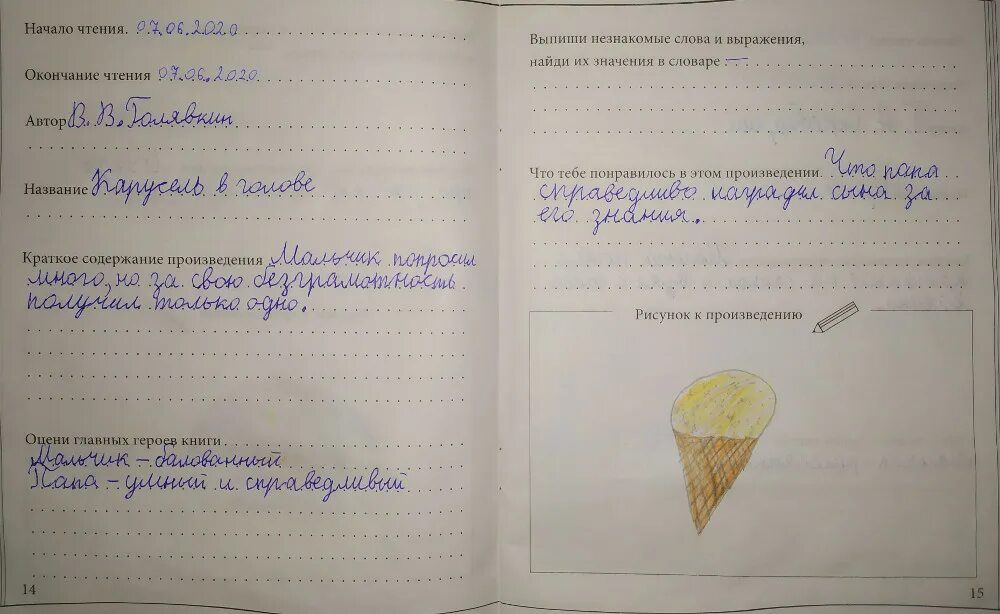 Начало чтения. 07.06.2020
Окончание чтения 07.06.2020
Автор В. В. Голявкин
Название Карусель в голове
Краткое содержание произведения Мальчик попросил
много, но за свою безграмотность
получил только одно.
Оцени главных героев книги
Мальчик – балованный
Папа – умный и справедливый
14
Выпиши незнакомые слова и выражения,
найди их значения в словаре —
Что тебе понравилось в этом произведении. Что папа
справедливо наградил сына за
его знания.
Рисунок к произведению
15